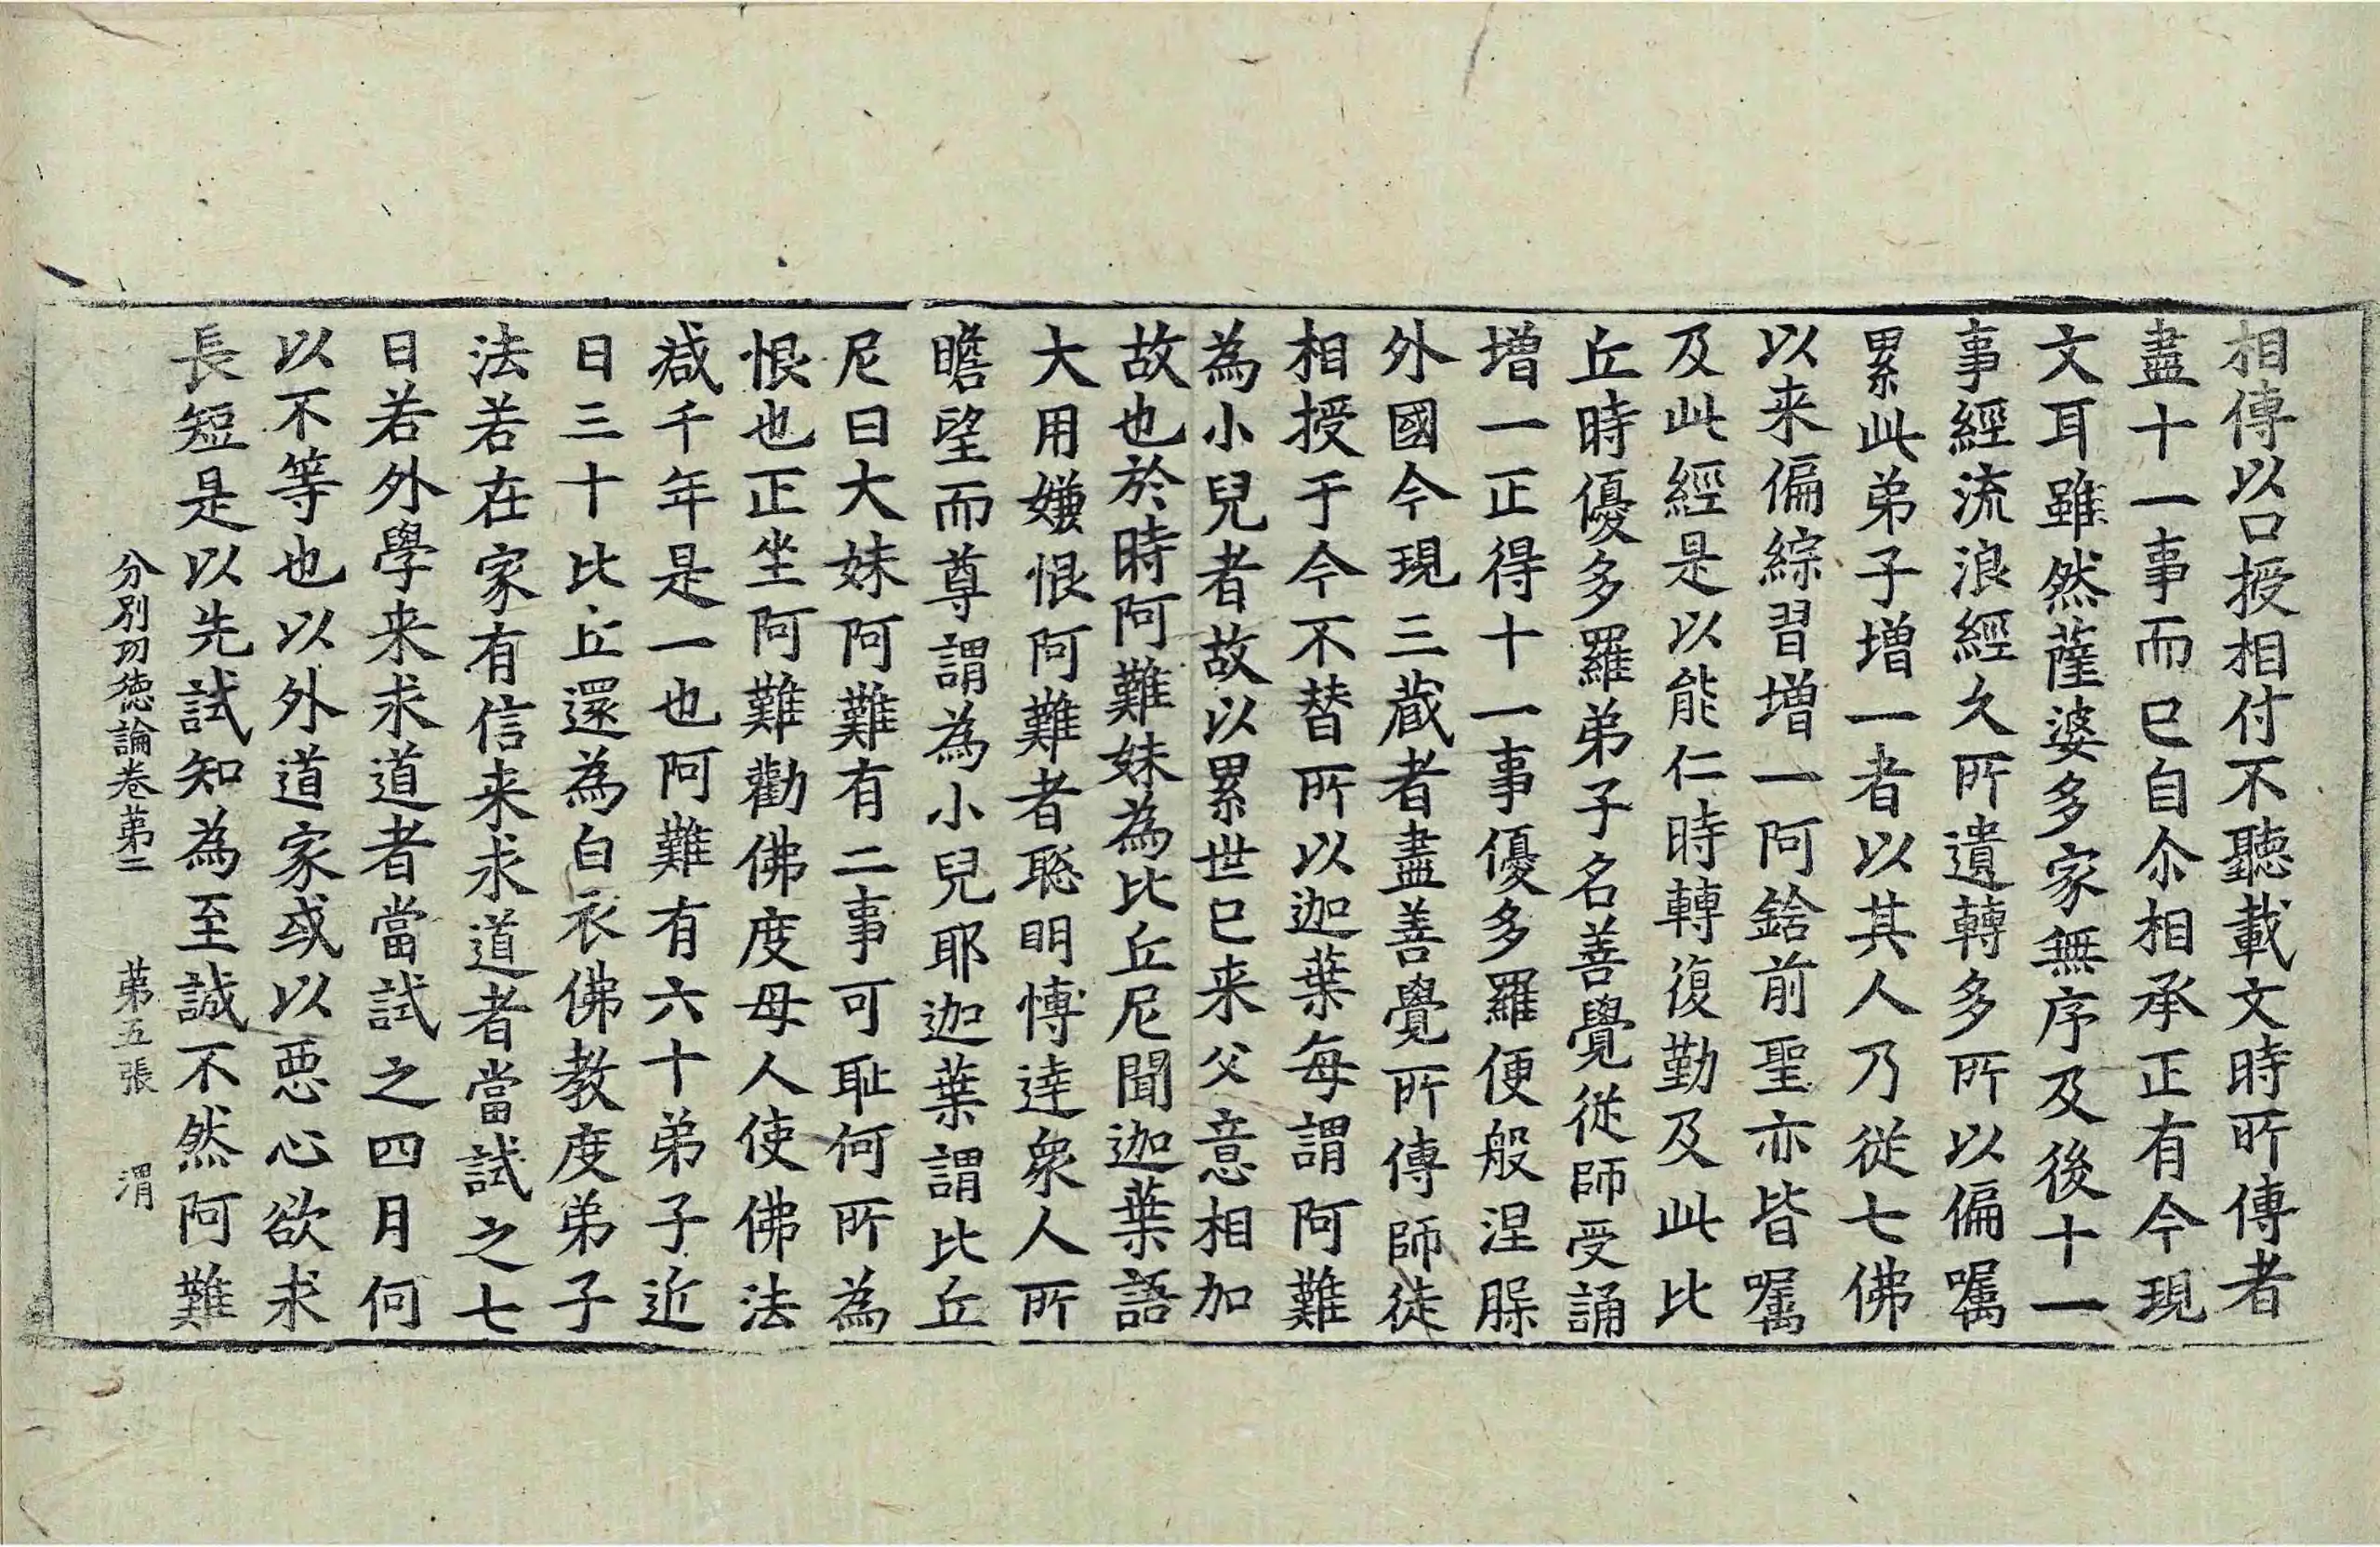 相傳以口授相付不聽載文時所傳者
盡十一事而已自尒相承正有今現
文耳雖然薩婆多家無序及後十一
事經流浪經久所遺轉多所以偏囑
累此弟子增一者以其人乃從七佛
以来偏綜習增一阿鋡前聖亦皆囑
及此經是以能仁時轉復勤及此比
丘時優多羅弟子名善覺從師受誦
增一正得十一事優多羅便般涅槃
外國今現三藏者盡善覺所傳師徒
相授于今不替所以迦葉每謂阿難
為小兒者故以累世已来父意相加
故也於時阿難妹為比丘尼聞迦葉語
大用嫌恨阿難者聡明愽達衆人所
瞻望而尊謂為小兒耶迦葉謂比丘
尼曰大妹阿難有二事可耻何所為
恨也正坐阿難勸佛度母人使佛法
减千年是一也阿難有六十弟子近
日三十比丘還為白衣佛教度弟子
法若在家有信来求道者當試之七
日若外學来求道者當試之四月何
以不等也以外道家或以惡心欲求
長短是以先試知為至誠不然阿難
分別功德論卷苐二 苐五張 渭